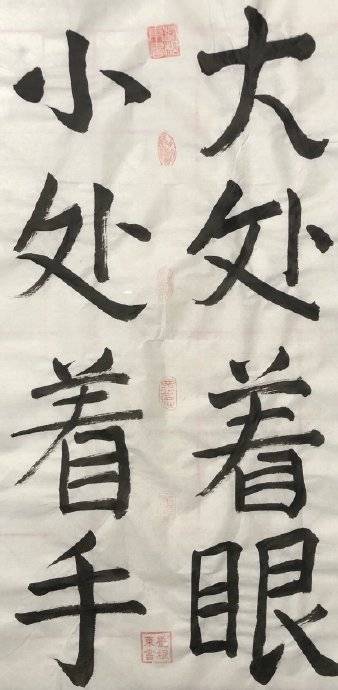 大处着眼
小处着手